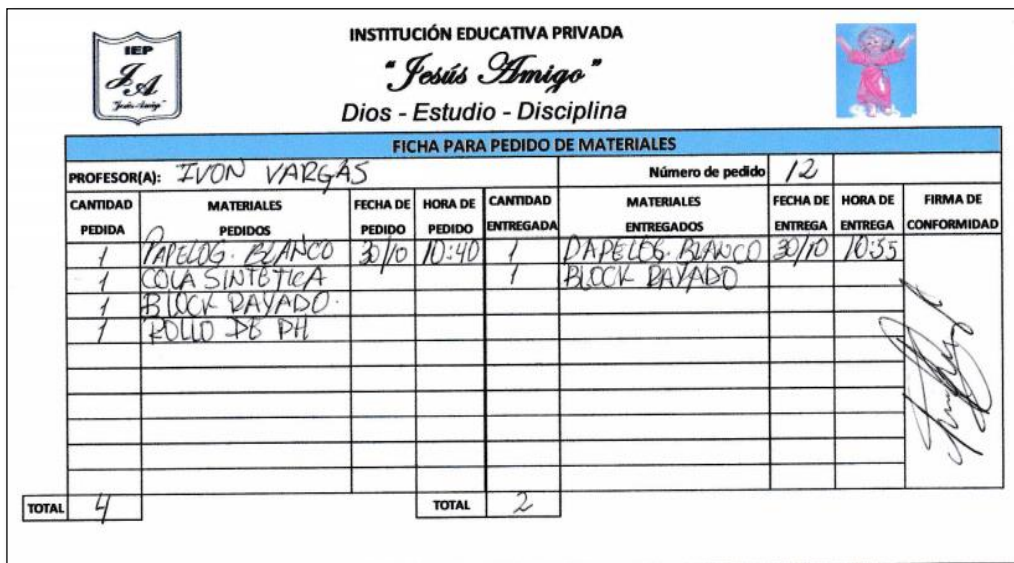 IEP
JA
"Jesús Amigo"
INSTITUCIÓN EDUCATIVA PRIVADA
"Jesús Amigo"
Dios - Estudio - Disciplina
FICHA PARA PEDIDO DE MATERIALES
PROFESOR(A): IVON VARGAS Número de pedido 12
CANTIDAD PEDIDA MATERIALES PEDIDOS FECHA DE PEDIDO HORA DE PEDIDO CANTIDAD ENTREGADA MATERIALES ENTREGADOS FECHA DE ENTREGA HORA DE ENTREGA FIRMA DE CONFORMIDAD
1 PAPELOG. BLANCO 30/10 10:40 1 PAPELOG. BLANCO 30/10 10:35
1 COLA SINTETICA 1 BLOCK RAYADO
1 BLOCK RAYADO.
1 ROLLO DE PH
TOTAL 4 TOTAL 2